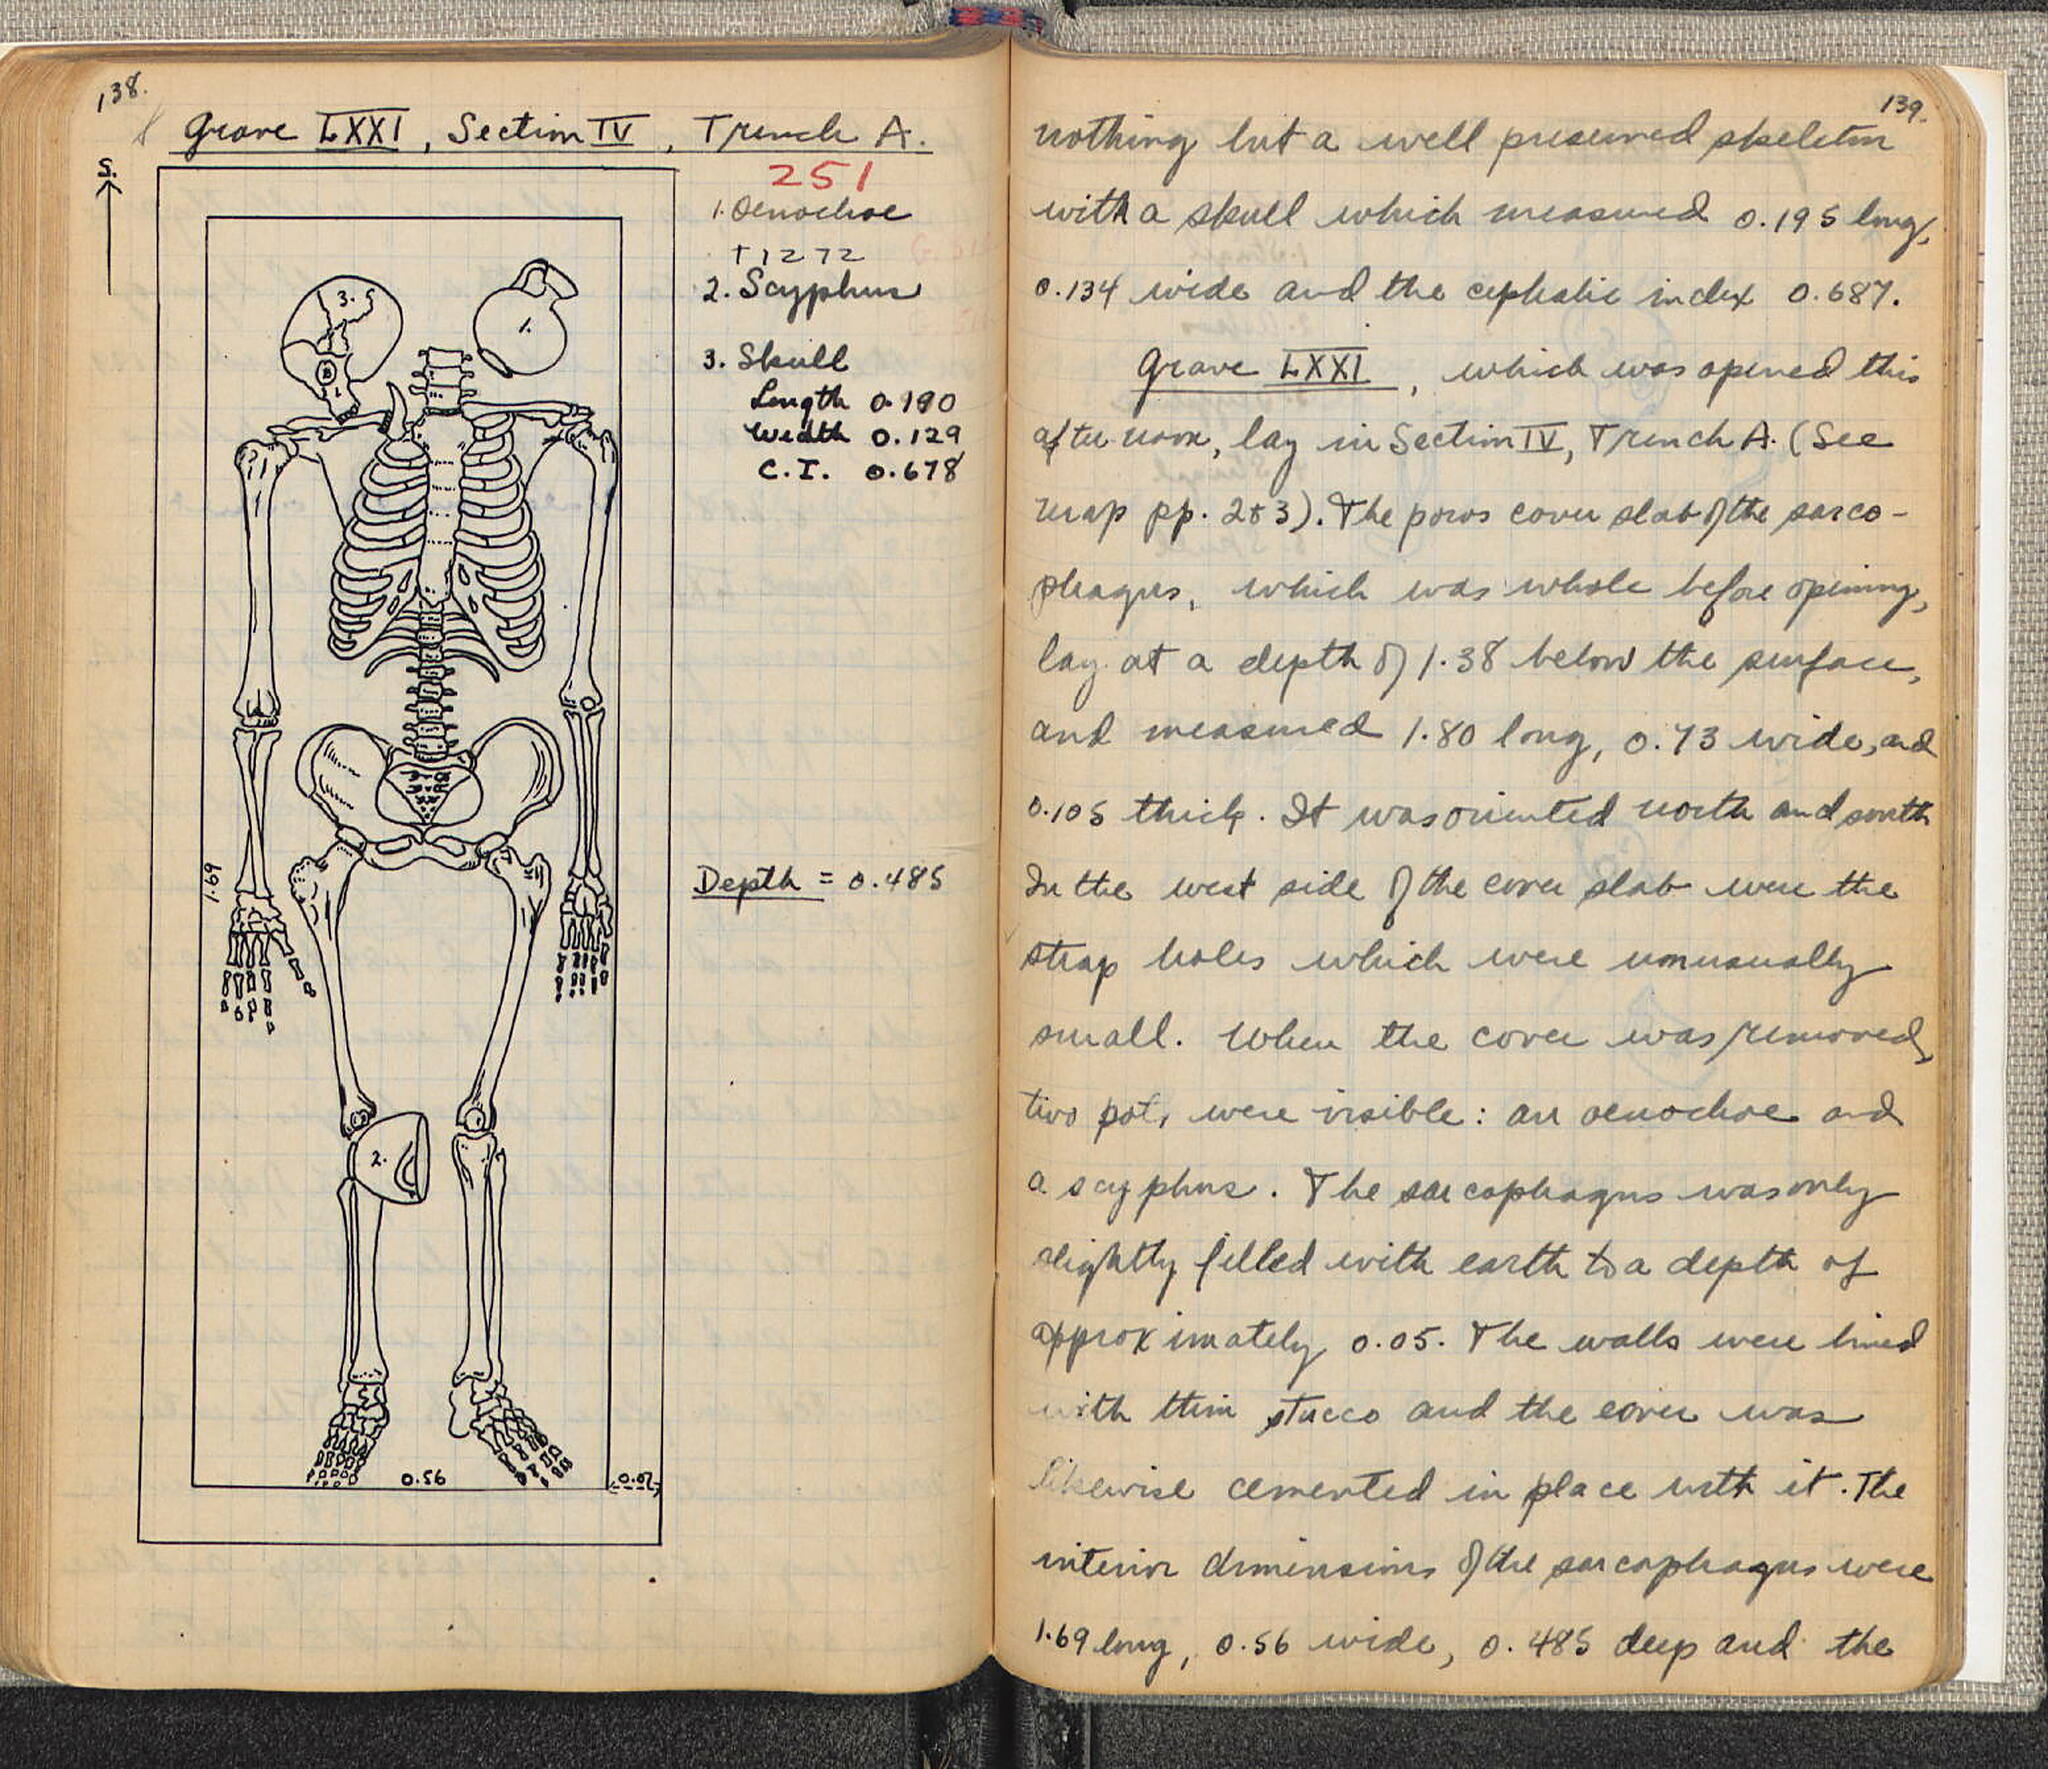 138.
Grave LXXI, Section IV, Trench A.
S.
251
1. Oenochoe
+1272
2. Scyphus
3. Skull
Length 0.190
Width 0.129
C.I. 0.678
3.
1.
1.69
Depth = 0.485
2.
0.56
139.
nothing but a well preserved skeleton
with a skull which measured 0.195 long,
0.134 wide and the cephalic index 0.687.
Grave LXXI, which was opened this
afternoon, lay in Section IV, Trench A. (See
map pp. 2+3). The poros cover slab of the sarco-
phagus, which was whole before opening,
lay at a depth of 1.38 below the surface,
and measured 1.80 long, 0.73 wide, and
0.105 thick. It was oriented north and south
In the west side of the cover slab were the
strap holes which were unusually
small. When the cover was removed,
two pots were visible: an oenochoe and
a scyphus. The sarcophagus was only
slightly filled with earth to a depth of
approximately 0.05. The walls were lined
with thin stucco and the cover was
likewise cemented in place with it. The
interior dimensions of the sarcophagus were
1.69 long, 0.56 wide, 0.485 deep and the